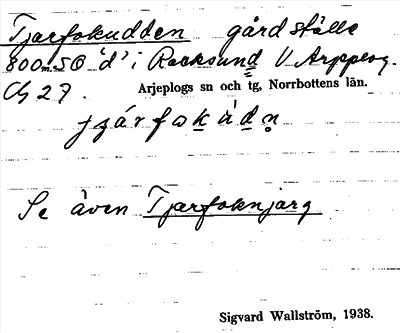 Tjarfokudden gårdställe
800m SO 'd' i Racksund V Arjeplog.
Arjeplogs sn och tg, Norrbottens län.
Se även Tjarfoknjarg
Sigvard Wallström, 1938.